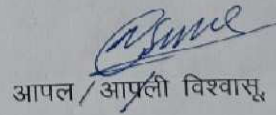 आपल / आपली विश्वासू,